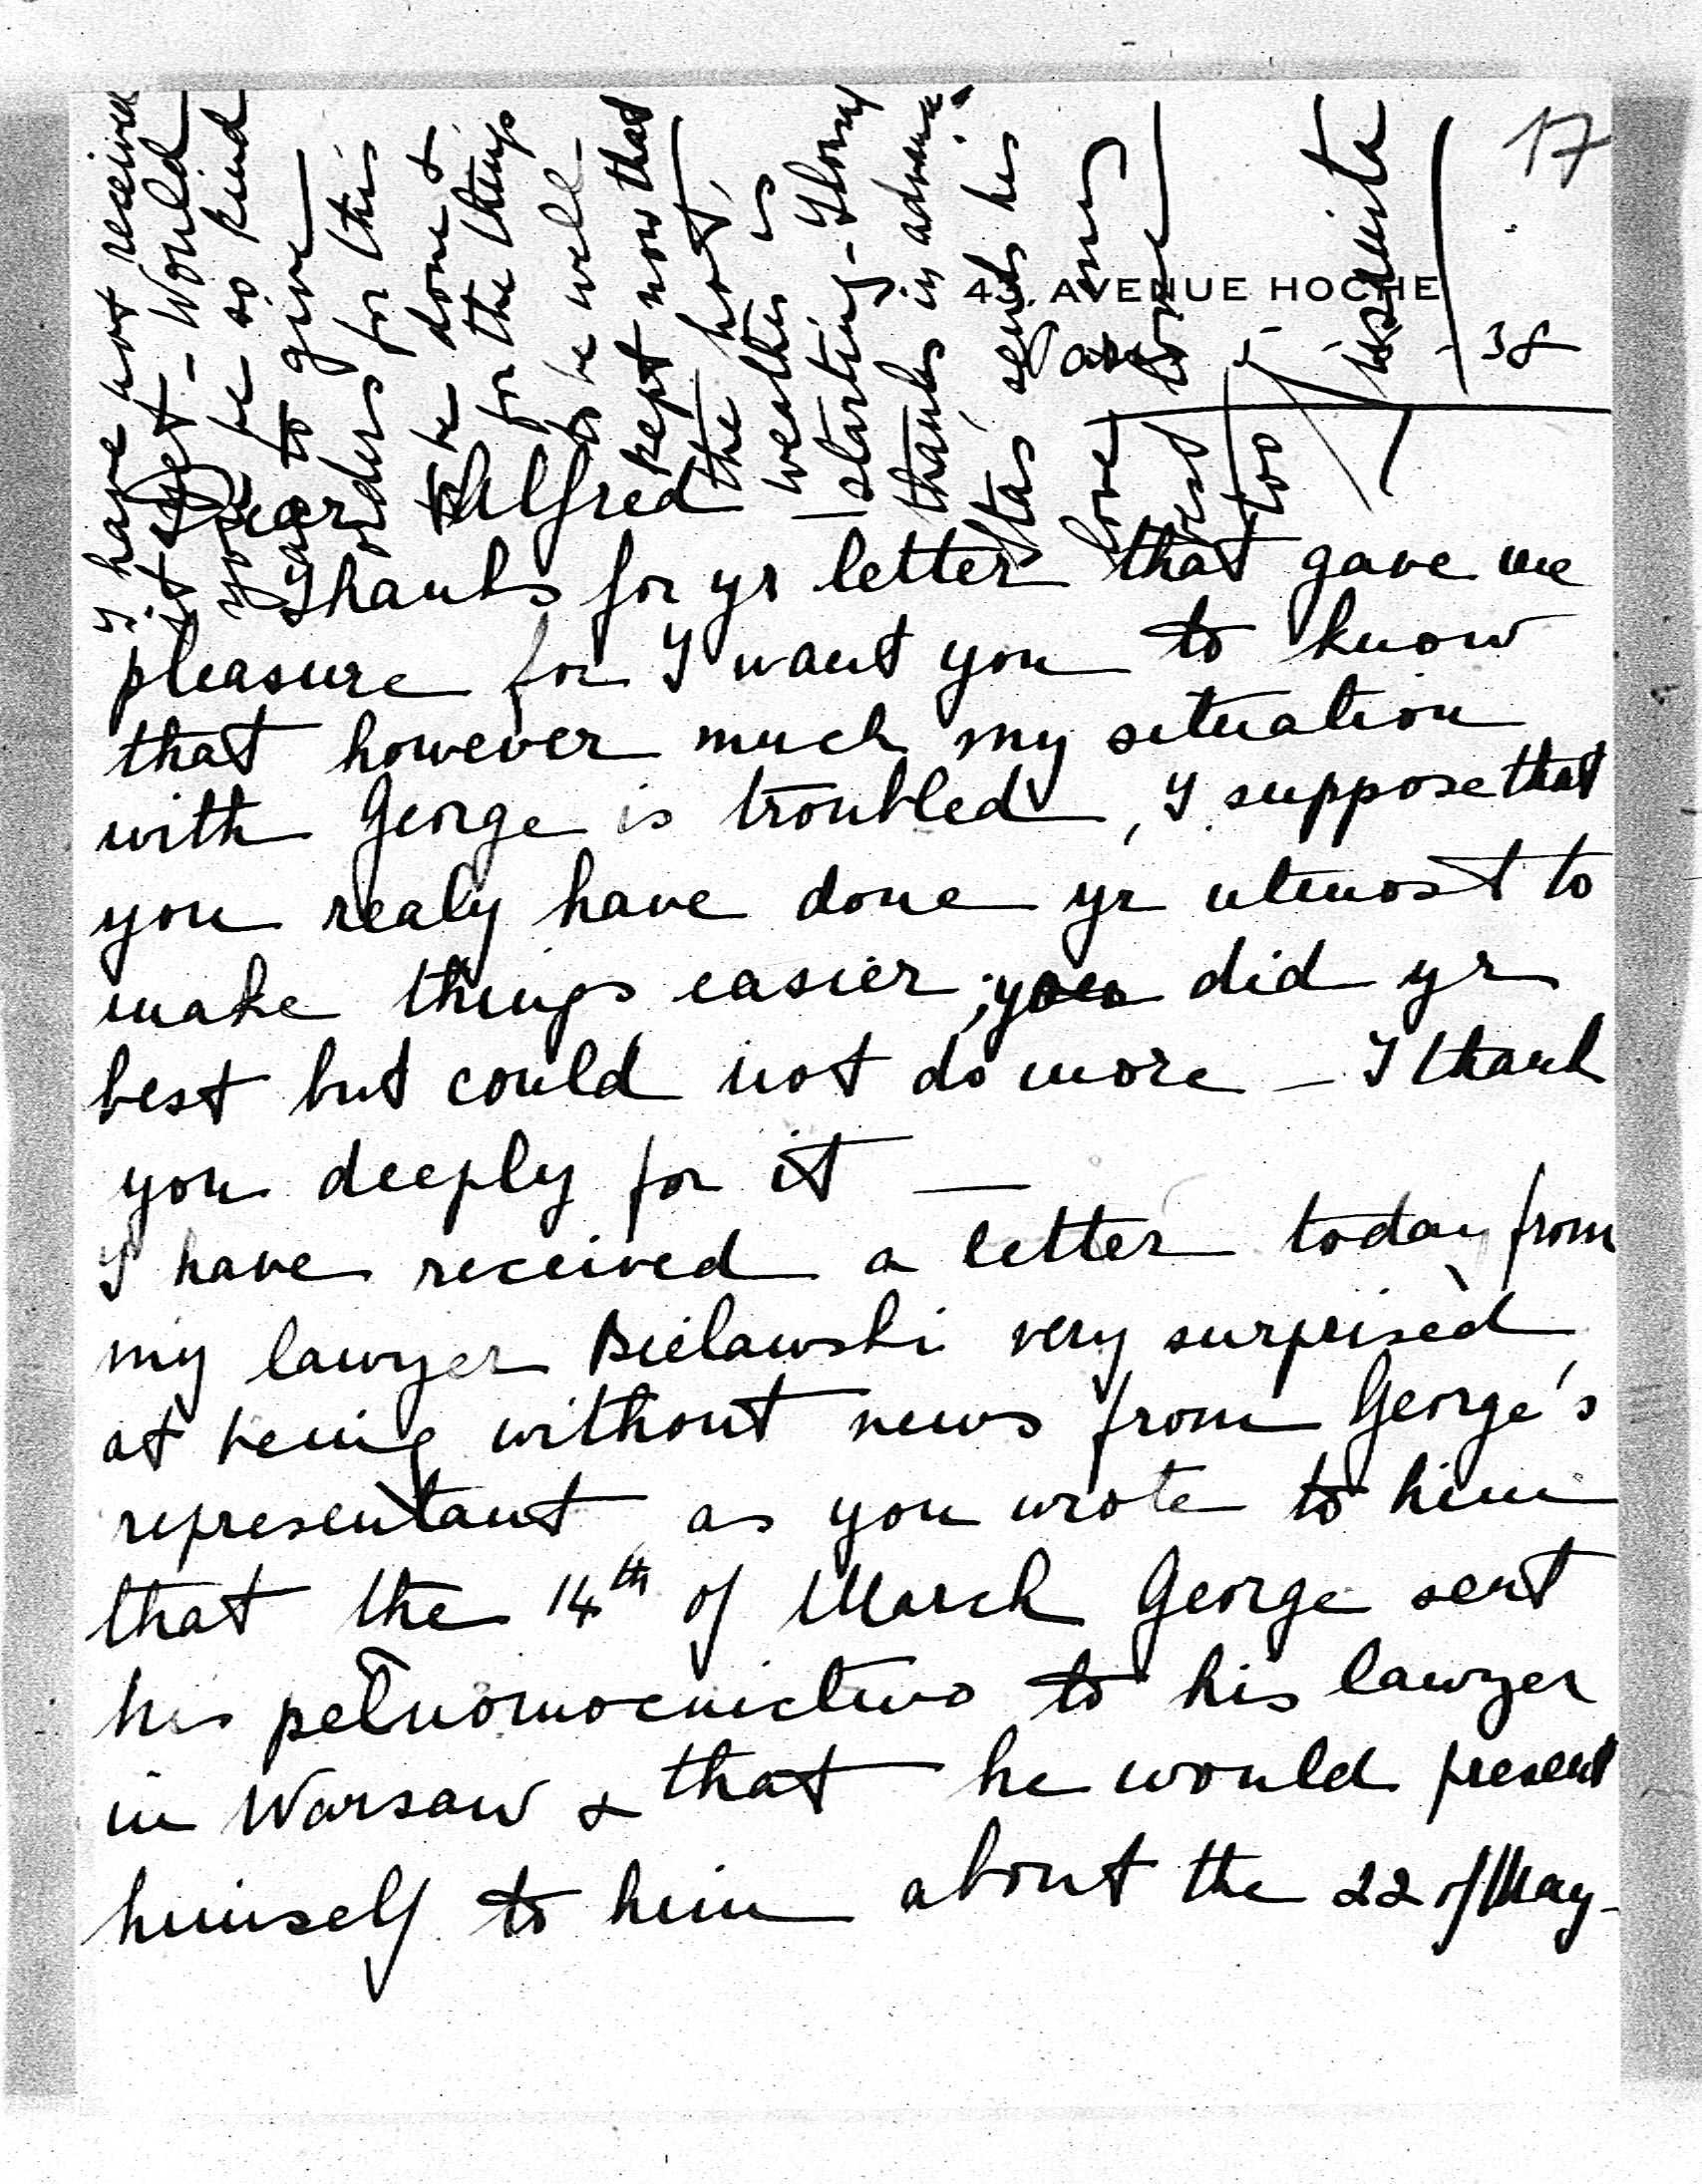 17
43, AVENUE HOCHE
Paris - 5 - 38
Dear Alfred —
Thanks for yr letter that gave me
pleasure for I want you to know
that however much my situation
with George is troubled, I suppose that
you realy have done yr utmost to
make things easier; you did yr
best but could not do more — I thank
you deeply for it —
I have received a letter today from
my lawyer Bielawski very surprised
at being without news from George's
representant as you wrote to him
that the 14th of March George sent
his pełnomocnictwo to his lawyer
in Warsaw & that he would present
himself to him about the 22 of May -
I have not received
it yet - Would
you be so kind
as to give
orders for this
to be done &
for the things
to be well
kept now that
the hot
weather is
starting - Thousy
thanks in advance.
Stas sends his
love
best
too